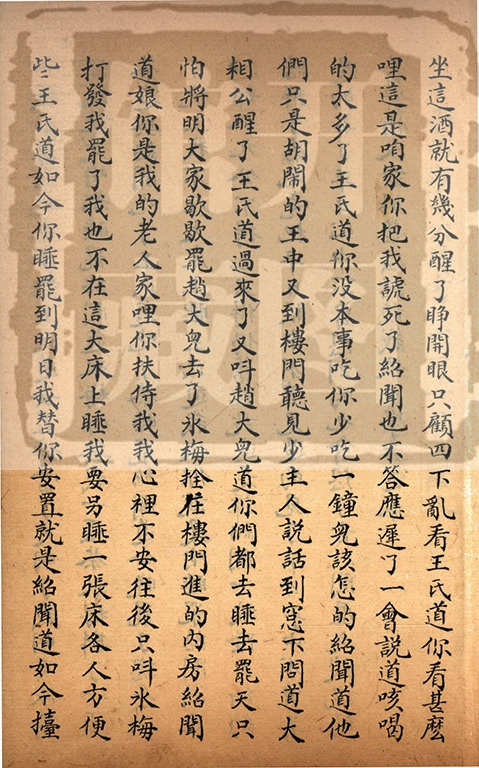 坐這酒就有幾分醒了睜開眼只顧四下亂看王氏道你看甚麼
哩這是咱家你把我諕死了紹聞也不答應遲了一會說道咳喝
的太多了王氏道你没本事吃你少吃一鐘兒該怎的紹聞道他
們只是胡鬧的王中又到樓門聽見少主人說話到窓下問道大
相公醒了王氏道過來了又呌趙大兒道你們都去睡去罷天只
怕將明大家歇歇罷趙大兒去了氷梅拴住樓門進的内房紹聞
道娘你是我的老人家哩你扶侍我我心裡不安往後只呌氷梅
打發我罷了我也不在這大床上睡我要另睡一張床各人方便
些王氏道如今你睡罷到明日我替你安置就是紹聞道如今擡